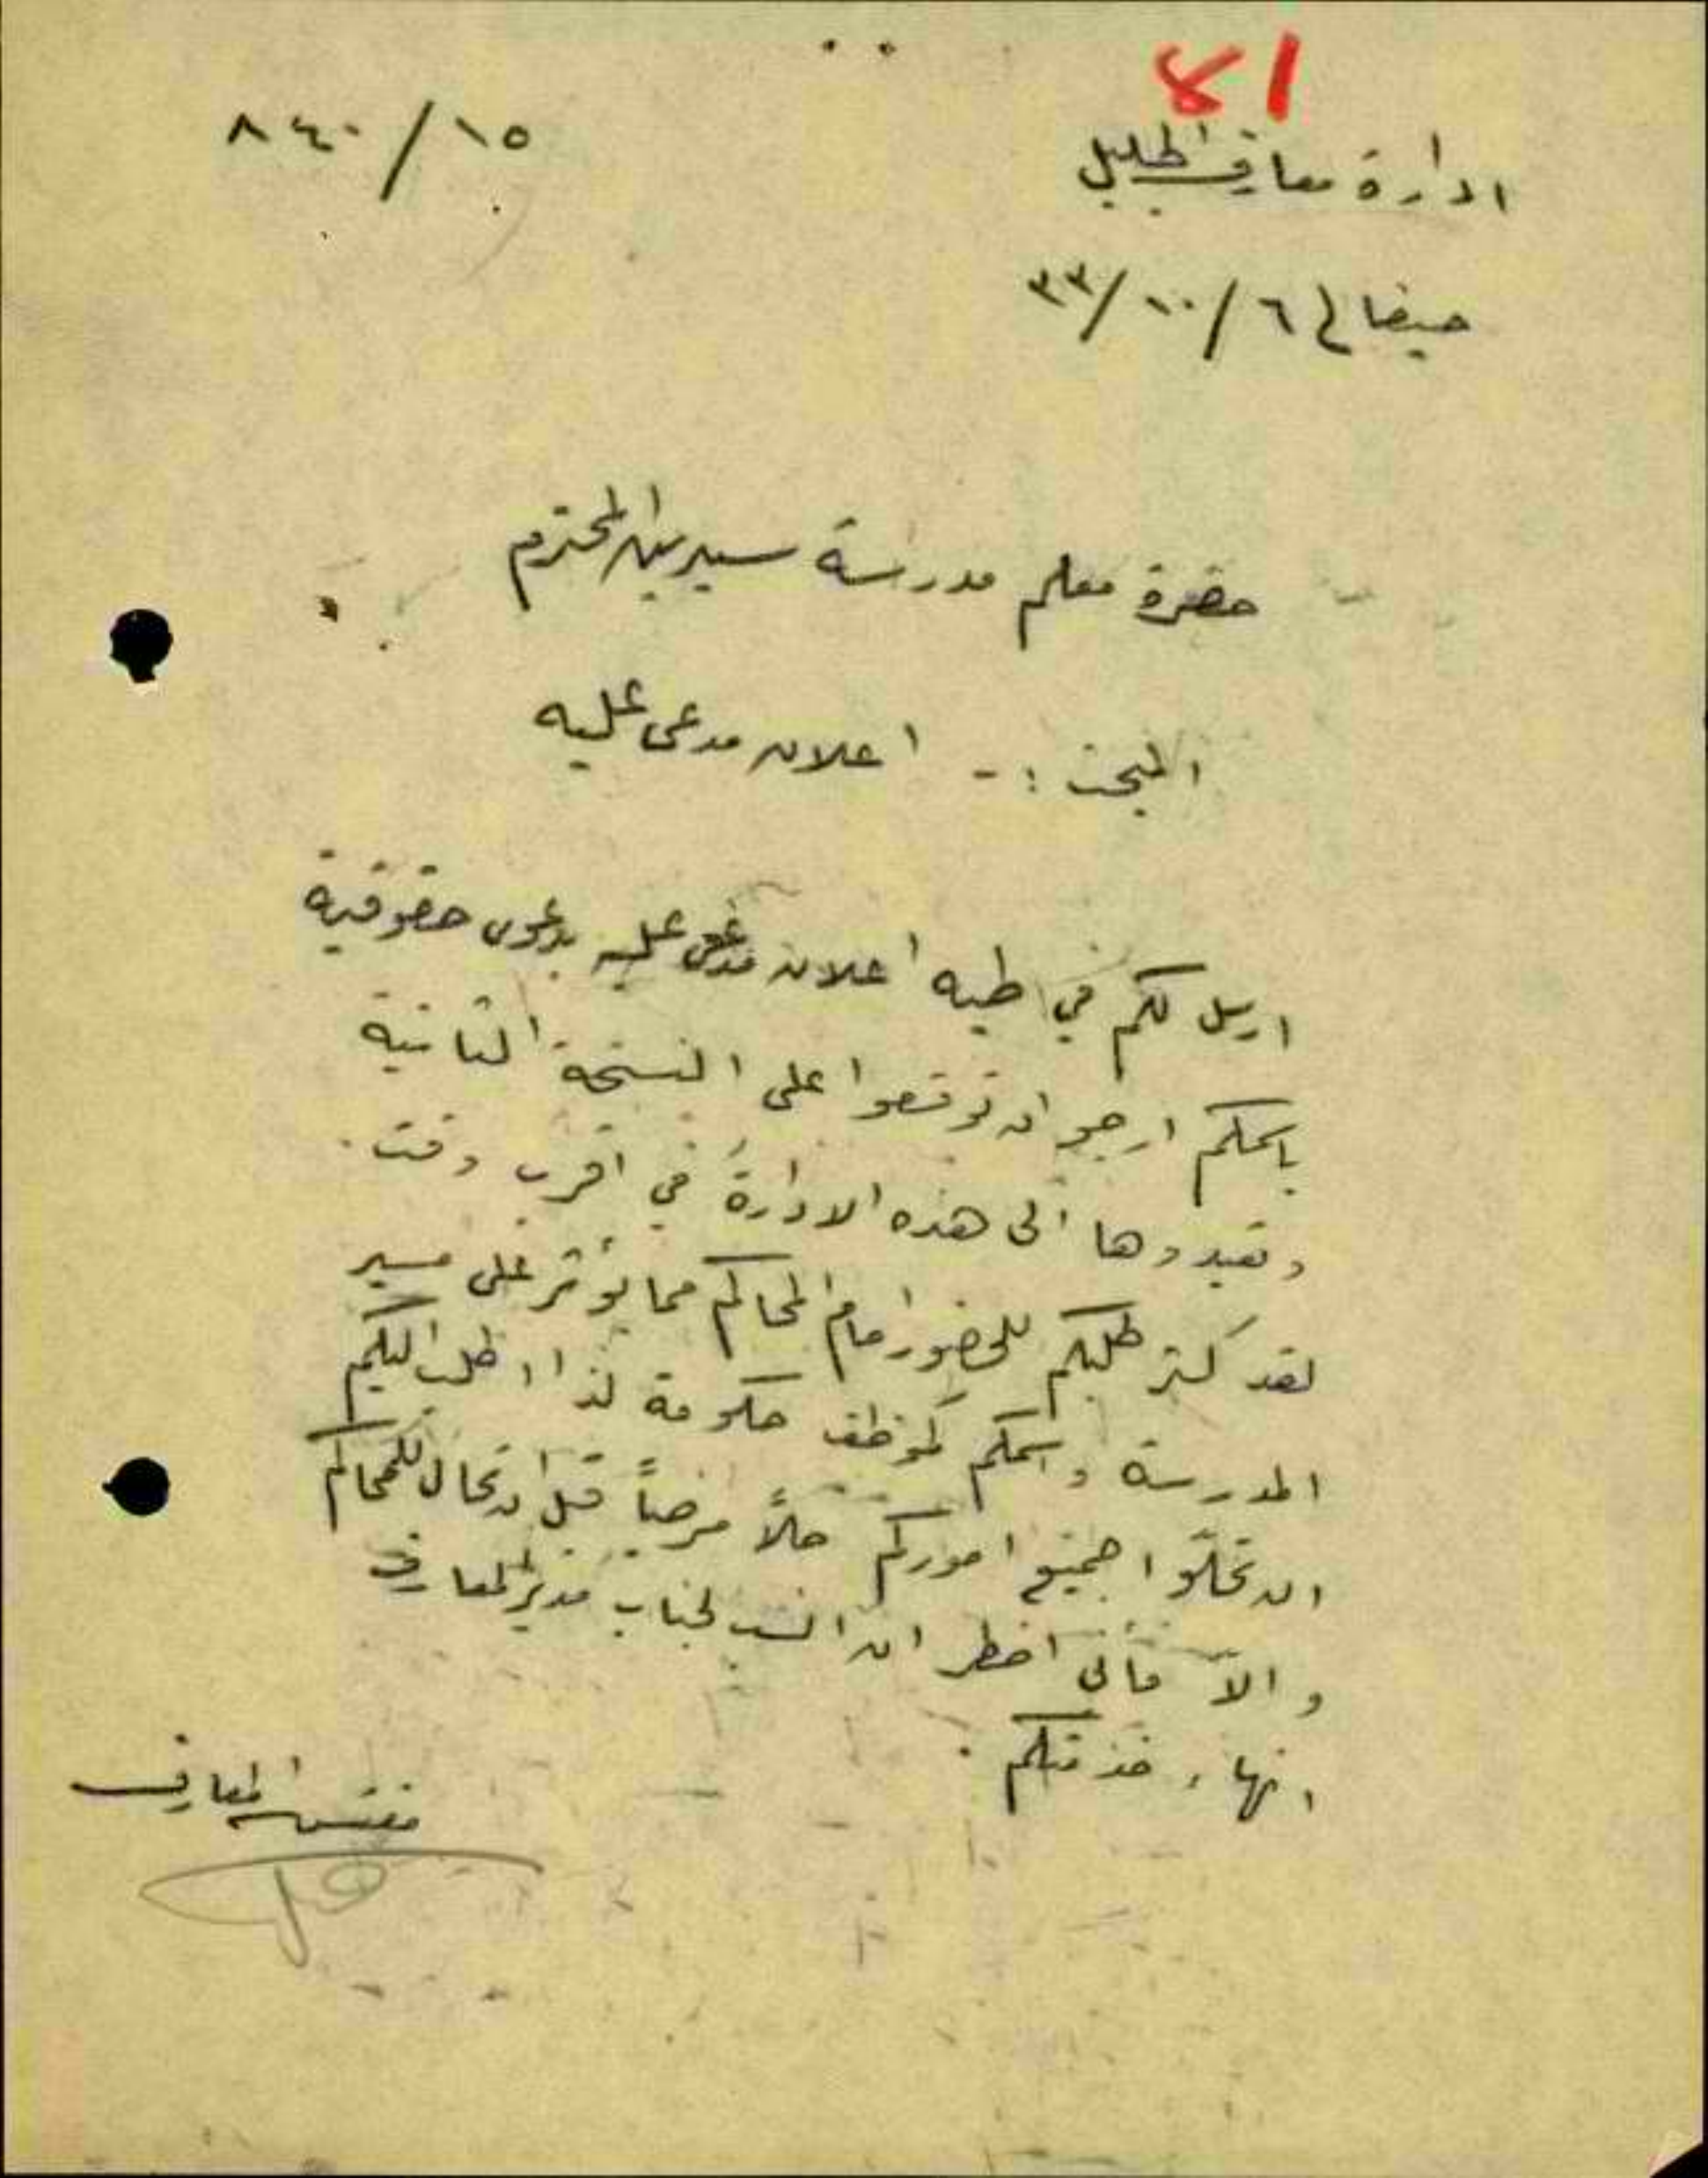 ١٥/٨٤٠
ادارة معارف الجليل
حيفا في ٦/١٠/٣٣
حضرة معلم مدرسة سيرين المحترم
المبحث :- اعلان مدعى عليه
ارسل لكم في طيه اعلان مدعى عليه بدعوى حقوقية
باسمكم ارجو ان توقعوا على النسخة الثانية
وتعيدوها الى هذه الادارة في اقرب وقت.
لقد كثر طلبكم للحضور امام المحاكم مما يؤثر على سير
المدرسة واسمكم كموظف حكومة لذا اطلب اليكم
ان تحلّوا جميع اموركم حلاً مرضياً قبل ان تحال للمحاكم
والاّ فأني اضطر ان انسب لجناب مدير المعارف
انهاء خدمتكم.
مفتش المعارف